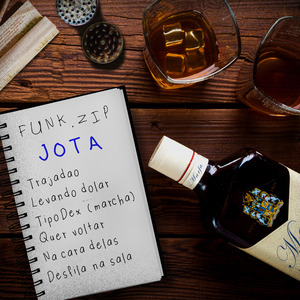 FUNK.ZIP
JOTA
Trajadão
Levando dolar
TipoDex (marcha)
Quer voltar
Na cara delas
Desfila na sala